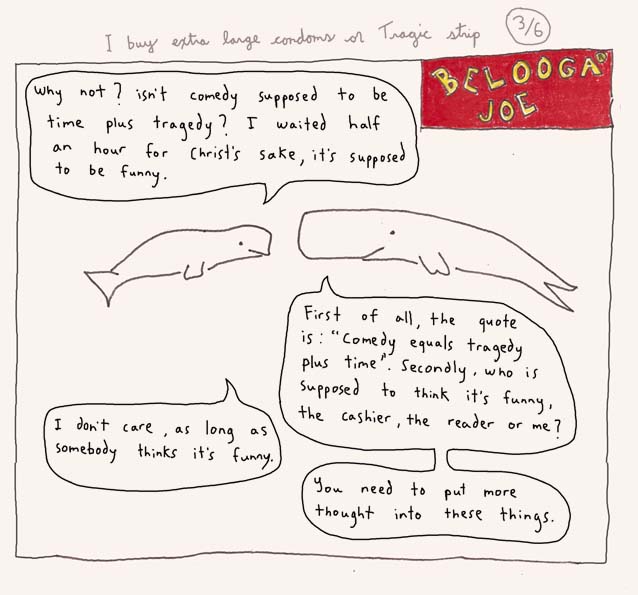 I buy extra large condoms or Tragic strip
3/6
BELOOGA
JOE
Why not? isn't comedy supposed to be
time plus tragedy? I waited half
an hour for Christ's sake, it's supposed
to be funny.
First of all, the quote
is: "Comedy equals tragedy
plus time". Secondly, who is
supposed to think it's funny,
the cashier, the reader or me?
I don't care, as long as
somebody thinks it's funny.
You need to put more
thought into these things.